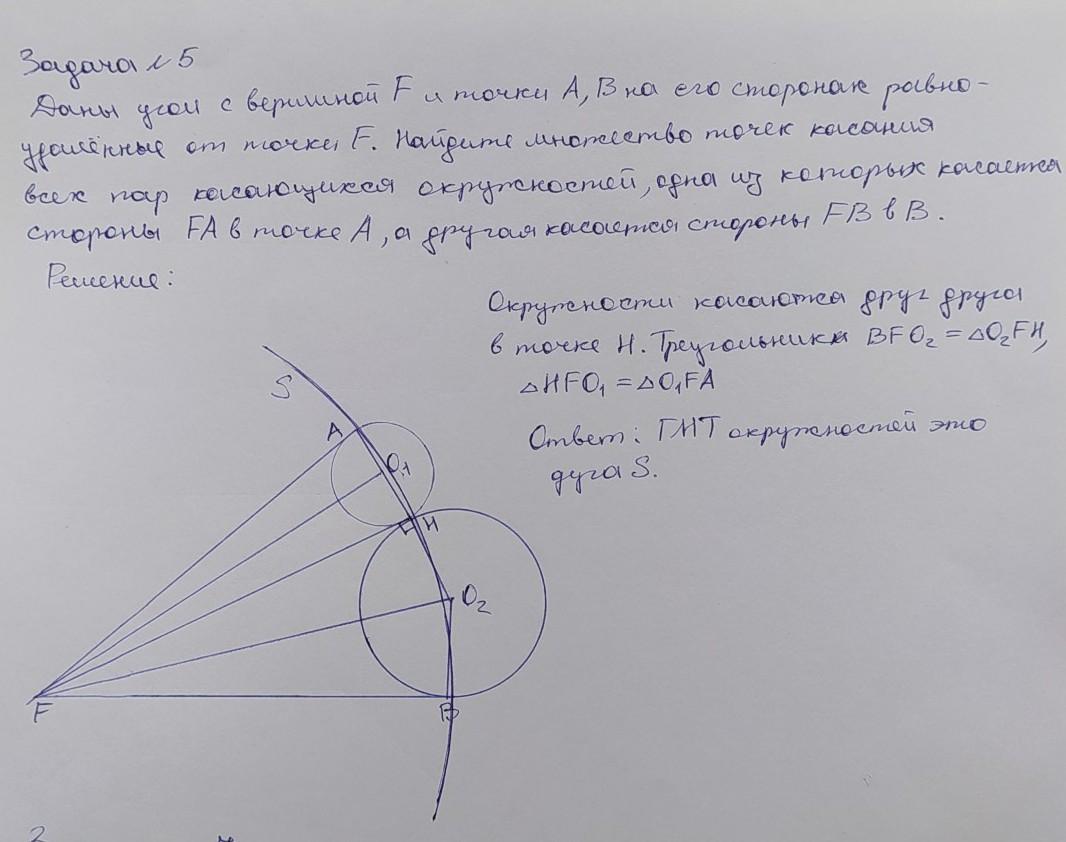 Задача №5
Даны угол с вершиной F и точки A, B на его сторонах равно-
удалённые от точки F. Найдите множество точек касания
всех пар касающихся окружностей, одна из которых касается
стороны FA в точке A, а другая касается стороны FB в B.
Решение:
Окружности касаются друг друга
в точке H. Треугольники BFO₂ = △O₂FH,
△HFO₁ = △O₁FA
Ответ: ГМТ окружностей это
дуга S.
S
A
O₁
H
O₂
F
B